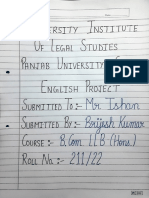 University Institute
Of Legal Studies
Panjab University,
English Project
Submitted To :- Mr Ishan
Submitted By :- Brijesh Kumar
Course :- B.Com LLB (Hons.)
Roll No. :- 211/22